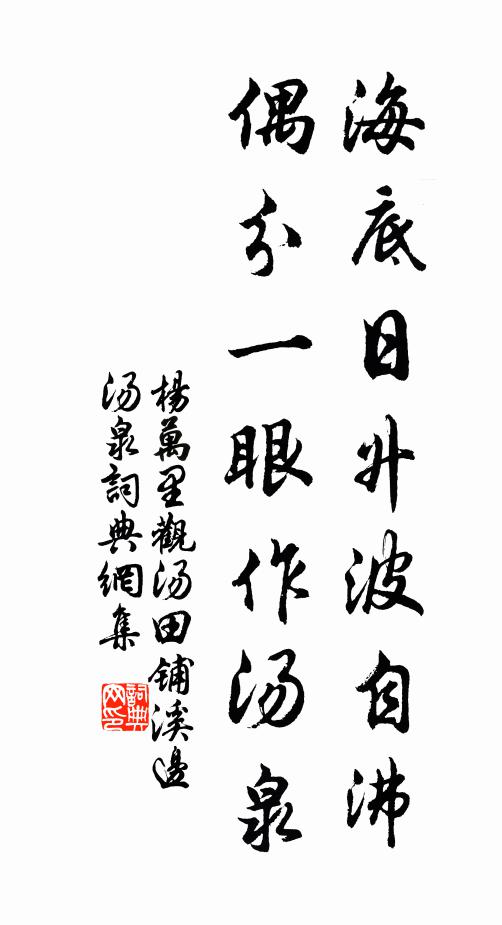 海底日升波自沸
偶分一眼作汤泉
楊萬里觀汤田铺溪邊
汤泉詞典網集
詞典网印